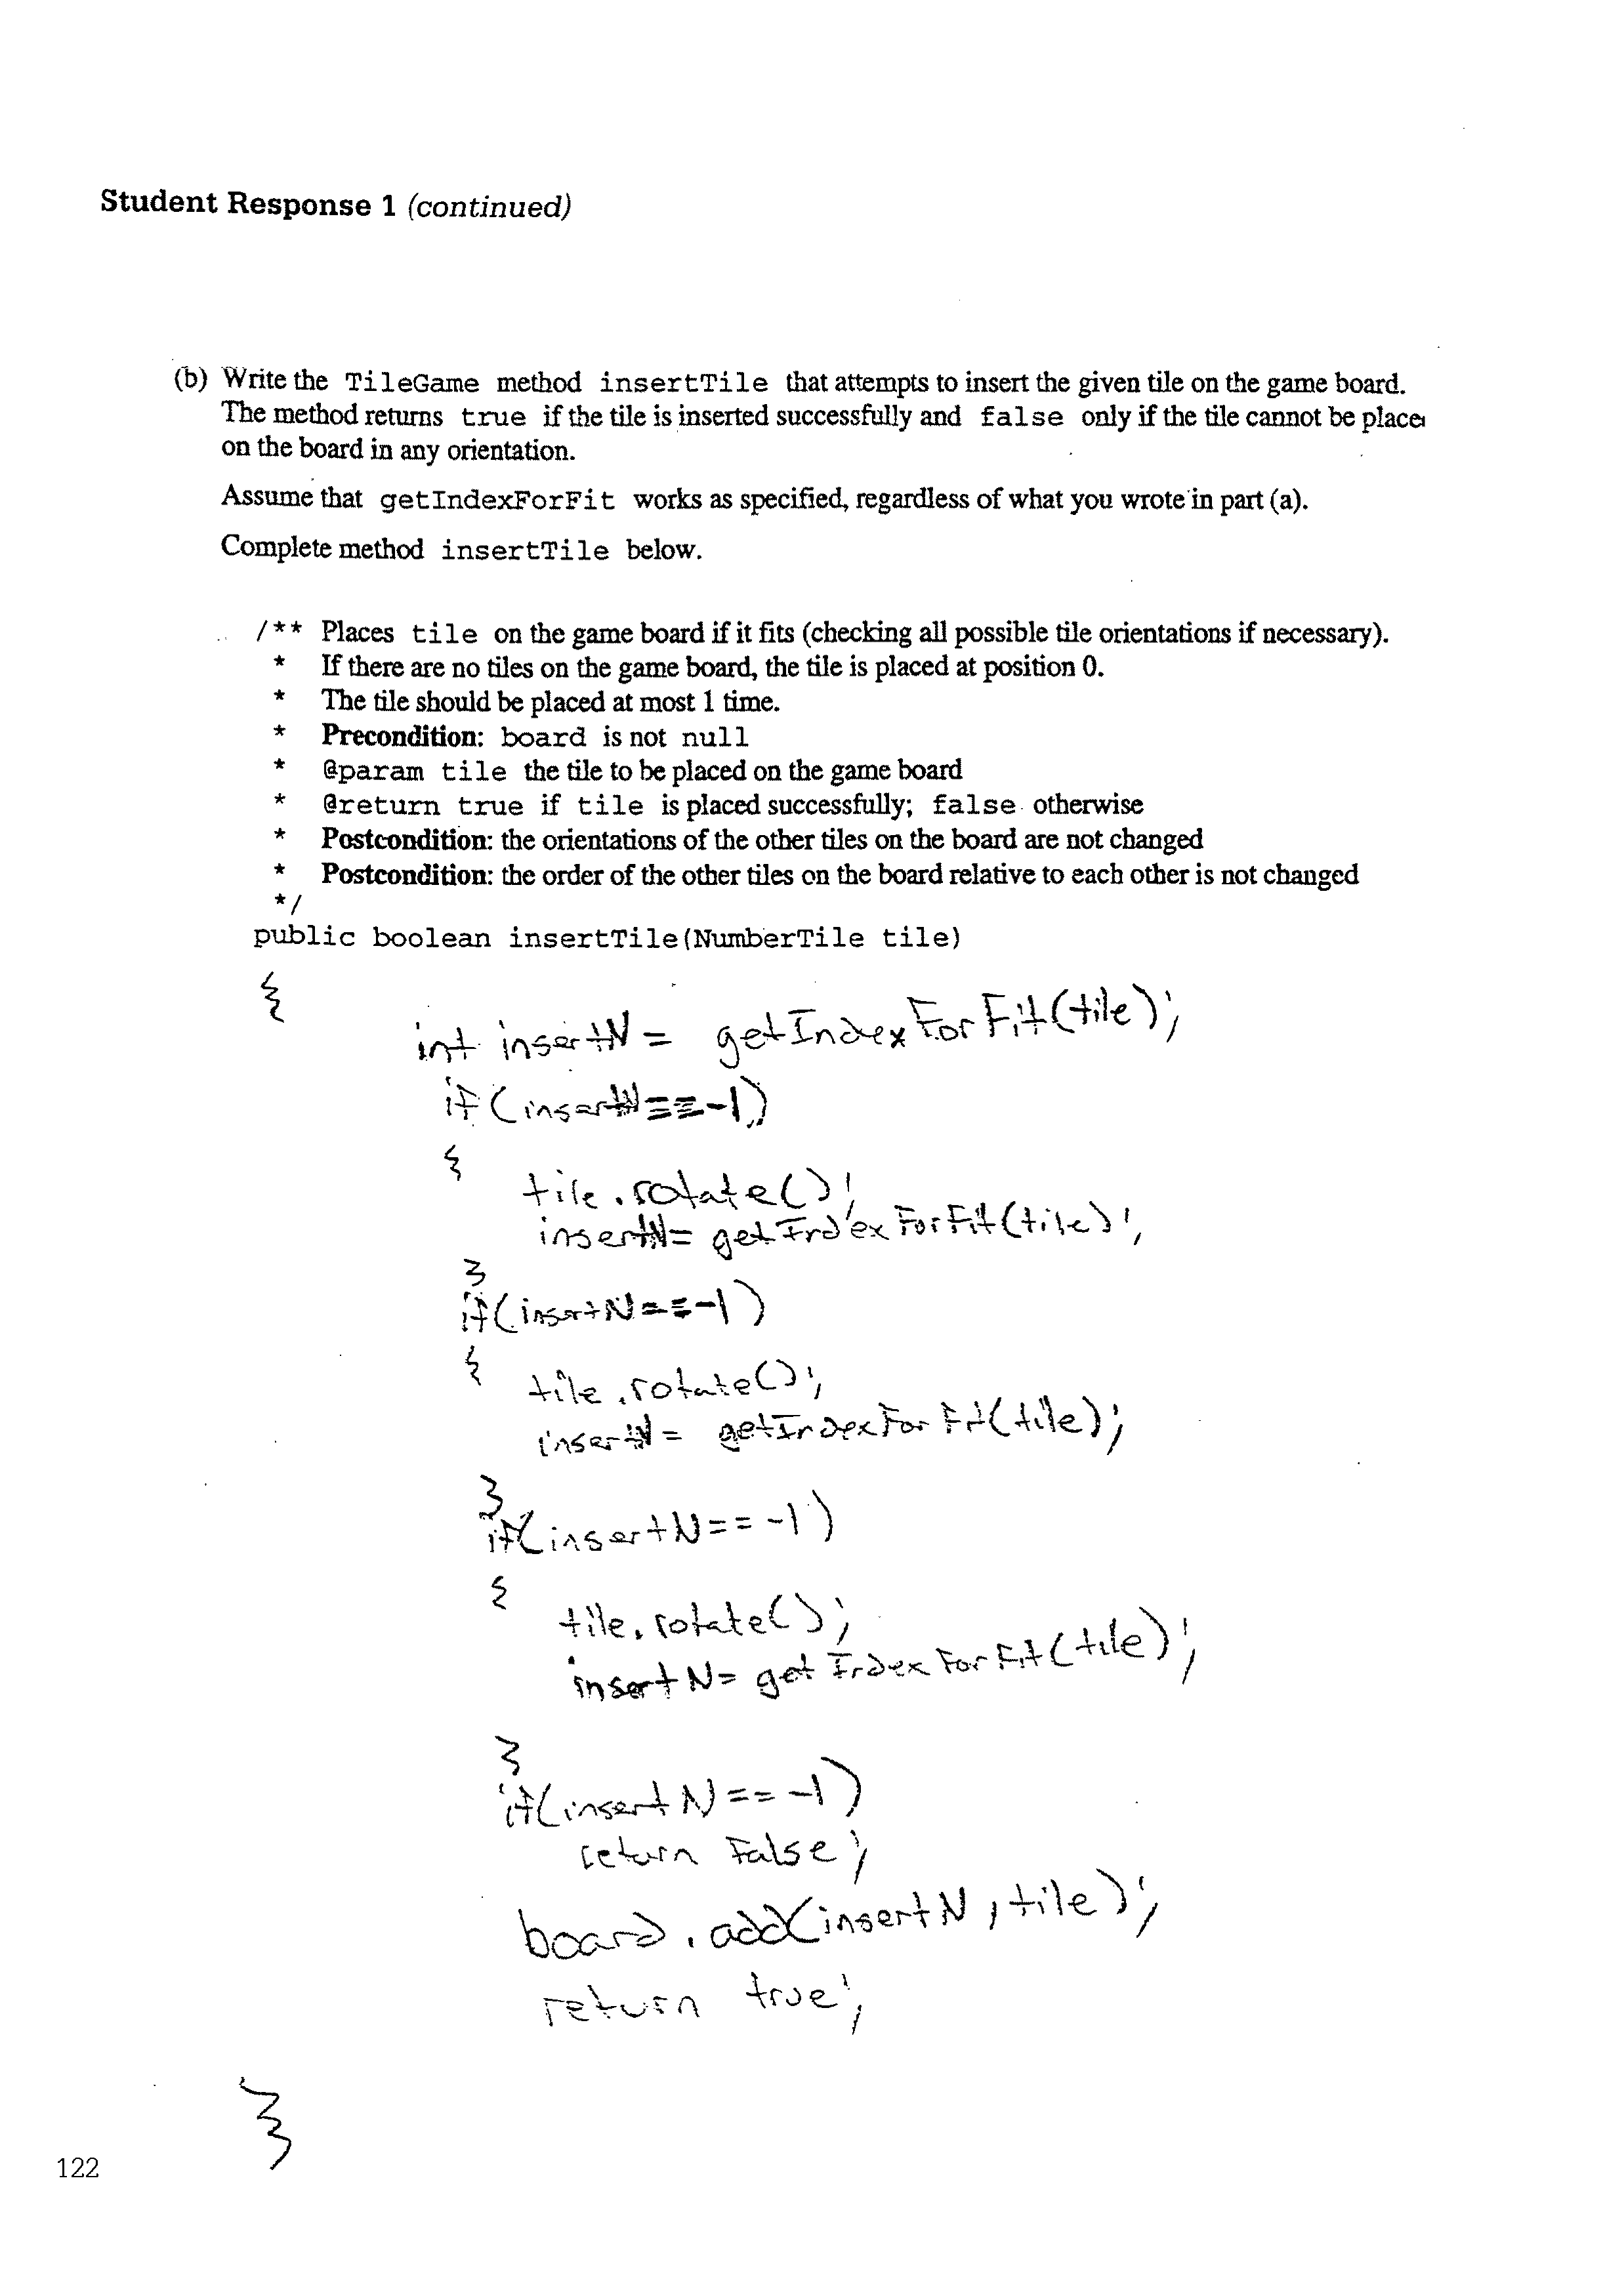 Student Response 1 (continued)
(b) Write the TileGame method insertTile that attempts to insert the given tile on the game board.
The method returns true if the tile is inserted successfully and false only if the tile cannot be place
on the board in any orientation.
Assume that getIndexForFit works as specified, regardless of what you wrote in part (a).
Complete method insertTile below.
/** Places tile on the game board if it fits (checking all possible tile orientations if necessary).
* If there are no tiles on the game board, the tile is placed at position 0.
* The tile should be placed at most 1 time.
* Precondition: board is not null
* @param tile the tile to be placed on the game board
* @return true if tile is placed successfully; false otherwise
* Postcondition: the orientations of the other tiles on the board are not changed
* Postcondition: the order of the other tiles on the board relative to each other is not changed
*/
public boolean insertTile(NumberTile tile)
{
int insertN = getIndexForFit(tile);
if(insertN==-1)
{
tile.rotate();
insertN= getIndexForFit(tile);
}
if(insertN==-1)
{
tile.rotate();
insertN= getIndexForFit(tile);
}
if(insertN==-1)
{
tile.rotate();
insertN= getIndexForFit(tile);
}
if(insertN==-1)
return False;
board.add(insertN, tile);
return true;
}
122